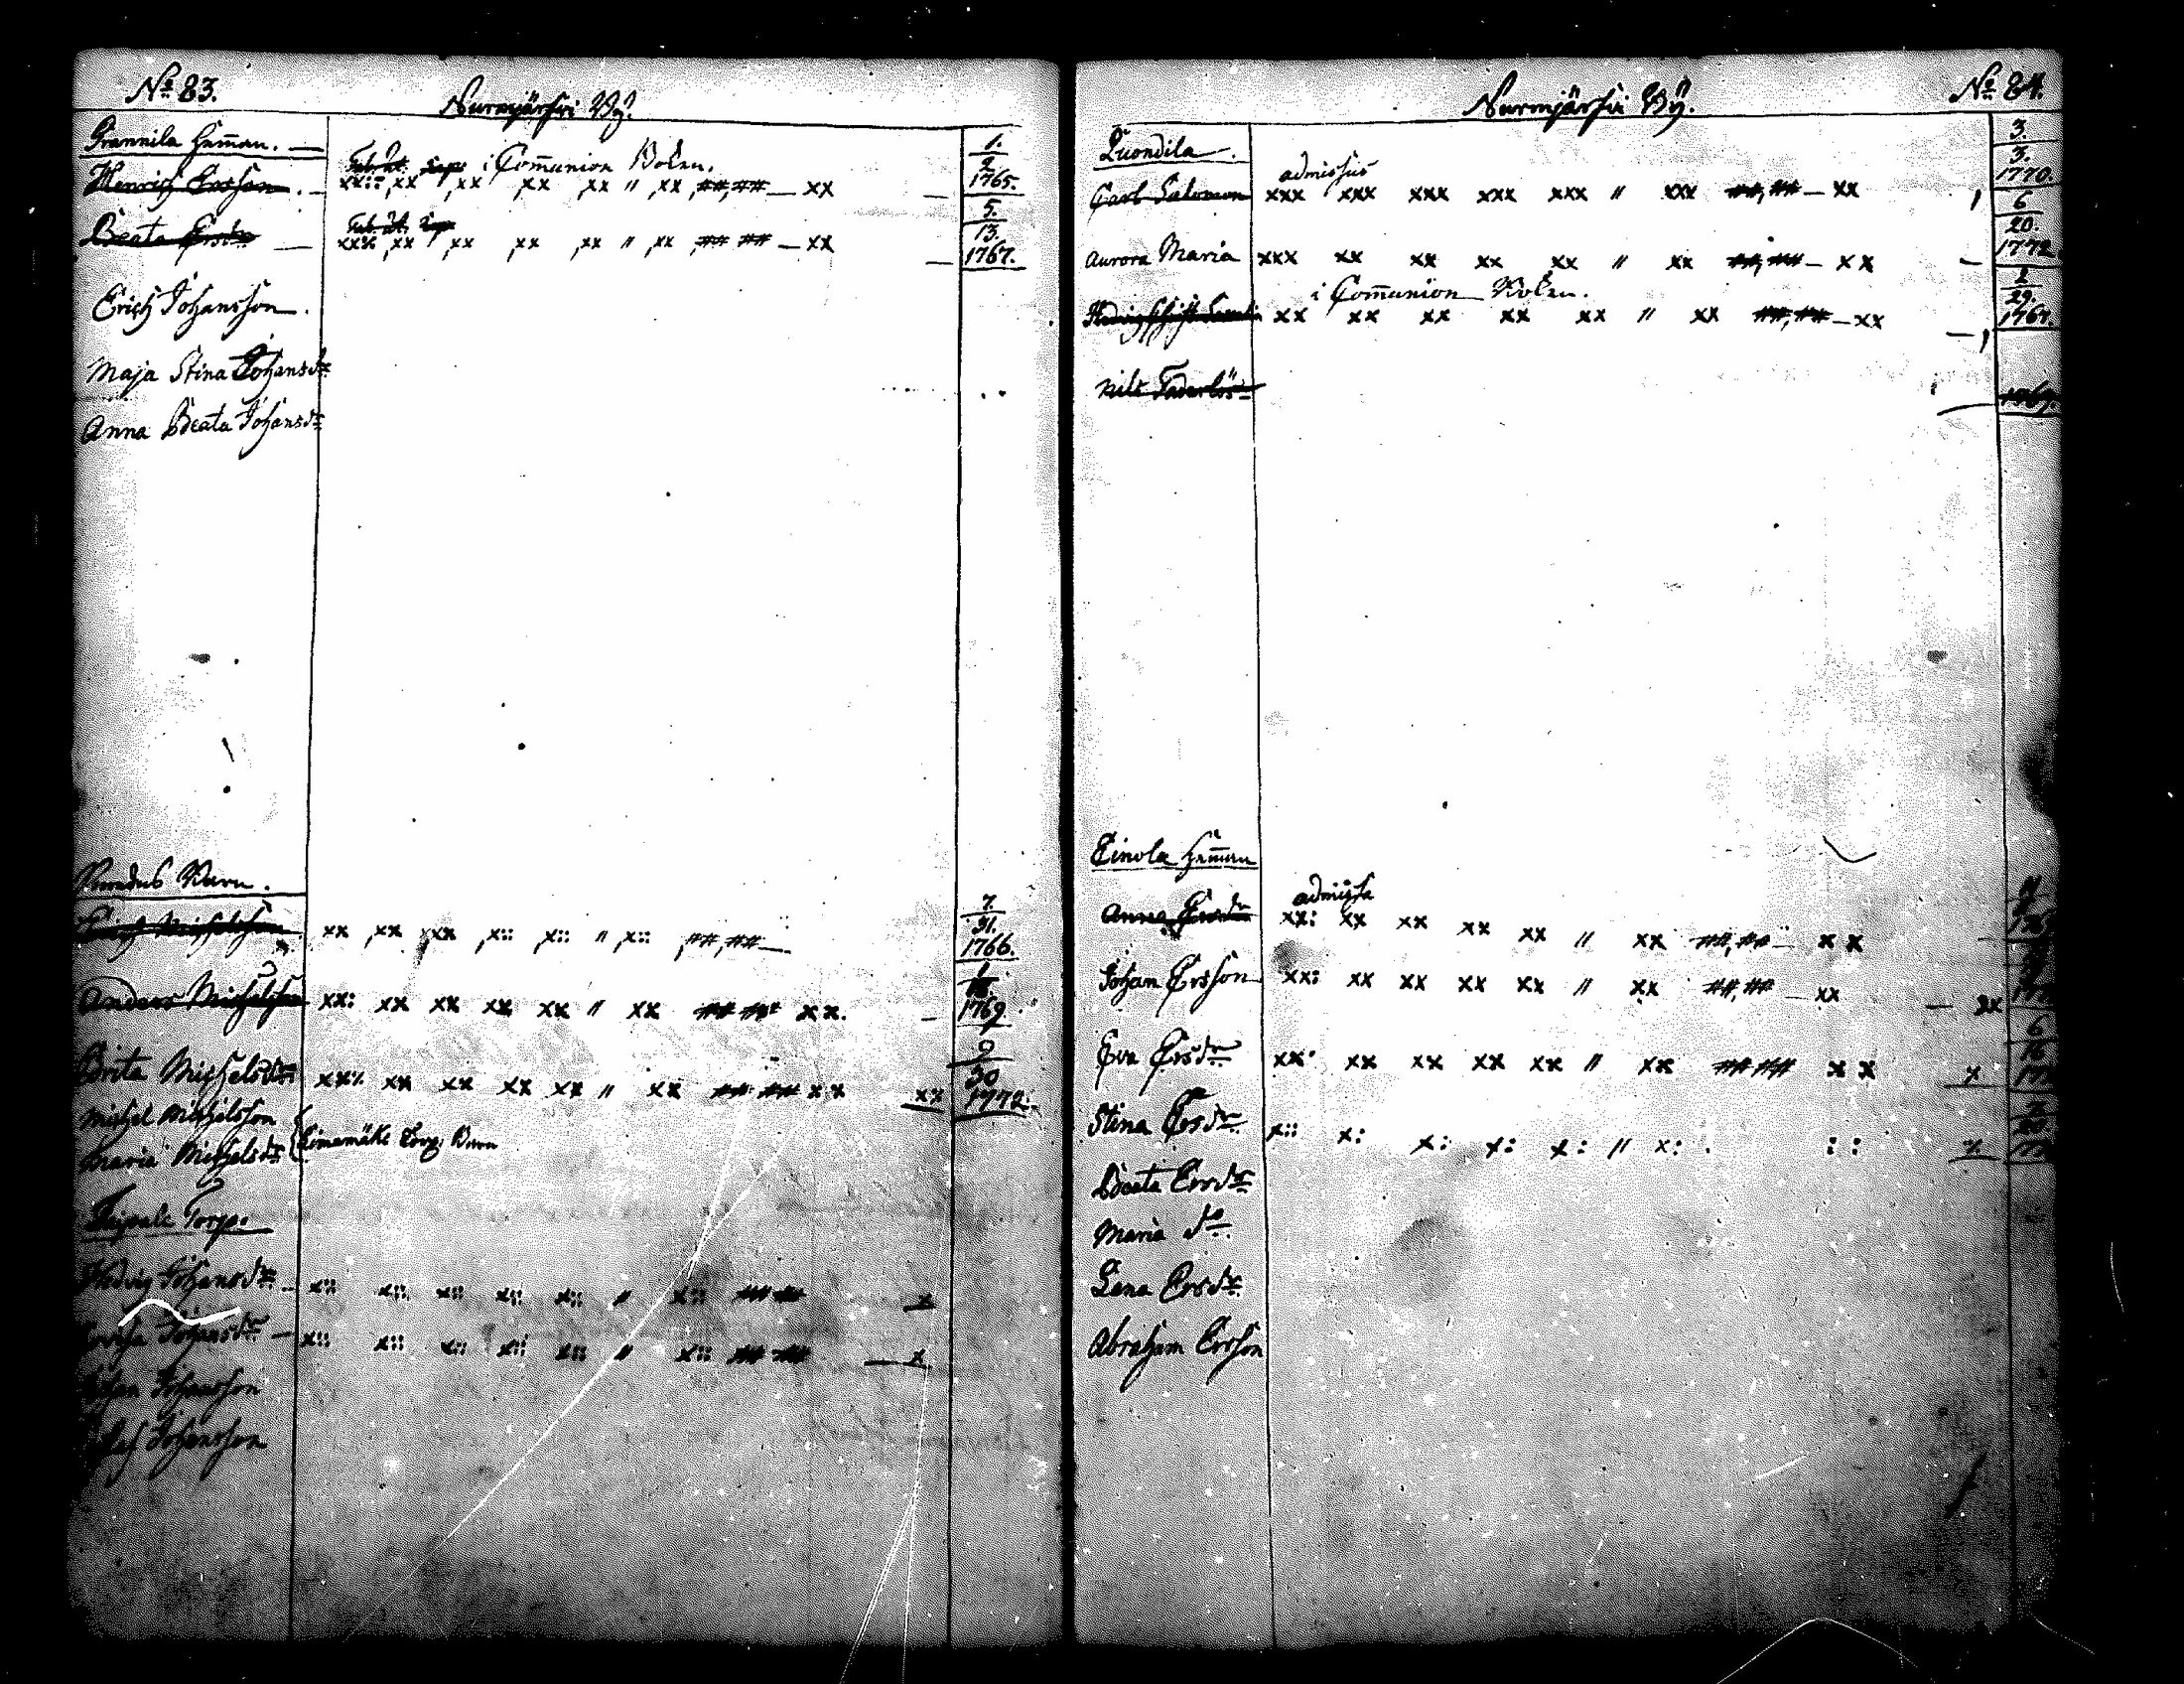 No 83.
Nurmjärfvi Bÿ.
Grannila Heman.
1.
i Comunion Boken.
Henrich Ersson
xx xx xx xx xx " xx ## ## — xx
2
1765.
5.
Beata Ersdr
xx xx xx xx xx " xx ## ## — xx
13.
1767.
Erich Johansson.
Maja Stina Johansdr
Anna Beata Johansdr
Barn.
7.
Erich Michelsson
xx xx xxx x:: x:: " x:: ## ## —
31.
1766.
Anders Michelsson
xx: xx xx xx xx " xx ## ## xx.
1769
9
Brita Michelsdr
xx% xx xx xx xx " xx ## ## xx xx
30
1772.
Michel Michelsson
Maria Michelsdr
Torp: Barn
Torp.
Hedvig Johansdr
x:: x:: x:: x:: x:: " x:: ## ## x
Johansdr
x:: x:: x:: x:: x:: " x:: ## ## x
Johan Johansson
Johansson
Nurmjärfvi Bÿ.
No 84.
3.
Quondila.
admissus
3.
1770.
Carl Salomon
xxx xxx xxx xxx xxx " xxx ## ## — xx
6
20.
1772
Aurora Maria
xxx xx xx xx xx " xx ## ## — xx
i Comunion Boken.
2
29.
1767.
xx xx xx xx xx " xx ## ## — xx
Nils Faderlös
Einola Heman
admissa
Anna Ersdr
xx: xx xx xx xx " xx ## ## — xx
Johan Ersson
xx: xx xx xx xx " xx ## ## — xx xx
6
Eva Ersdr
xx: xx xx xx xx " xx ## ## xx x
16
Stina Ersdr
x:: x: x: x: x: " x: . : : x
Beata Ersdr
Maria do
Lena Ersdr
Abraham Ersson